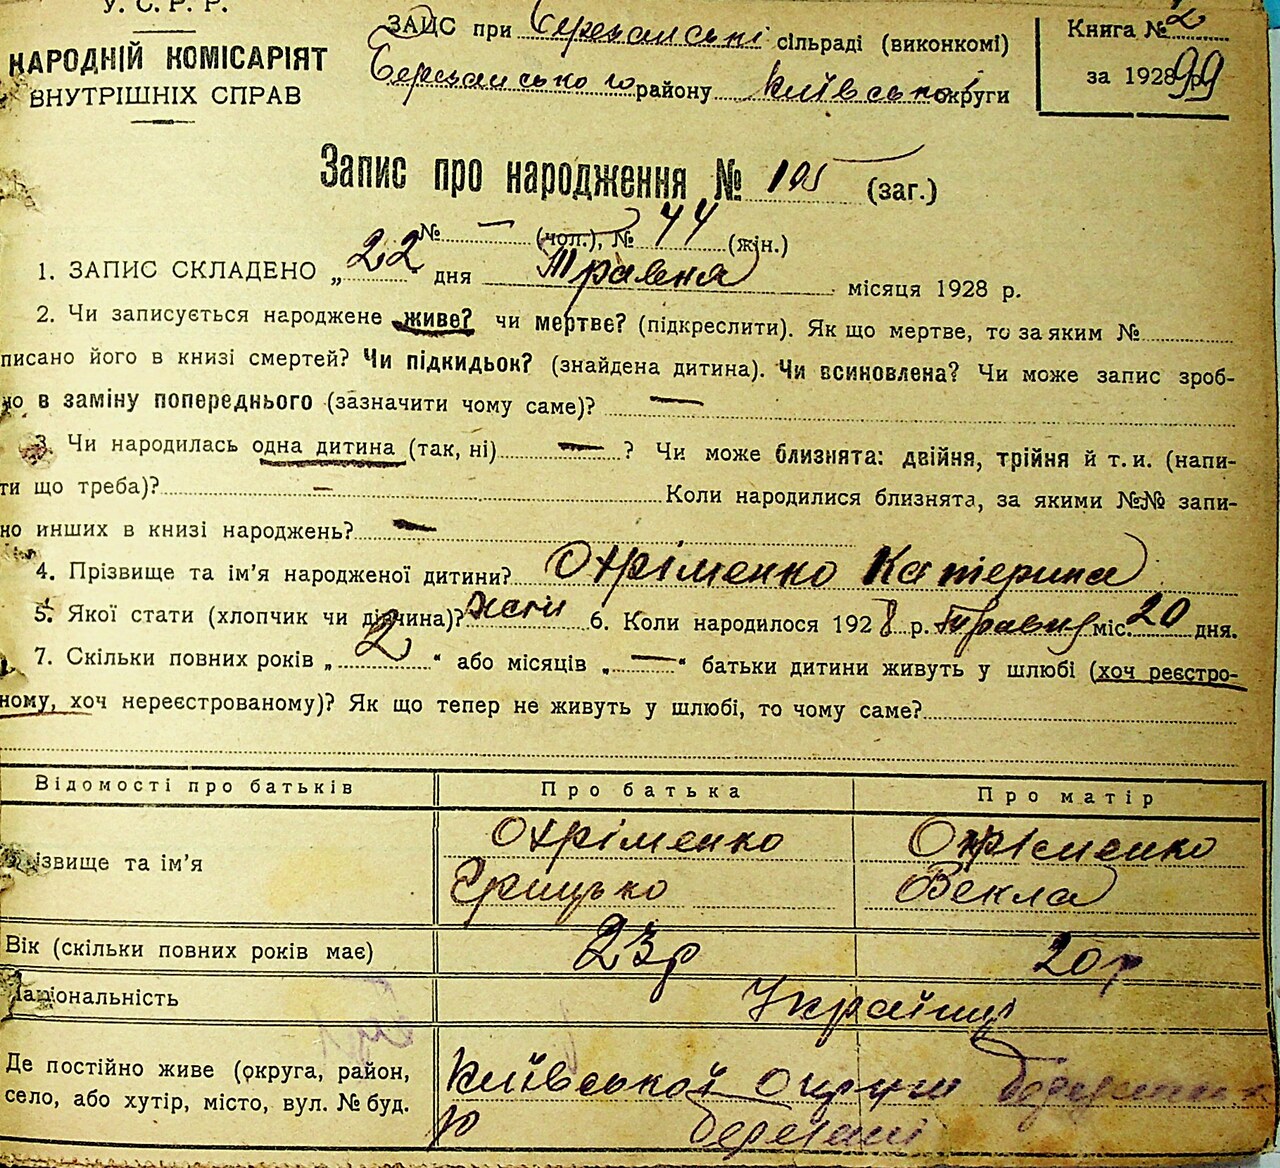 У. С. Р. Р.
НАРОДНІЙ КОМІСАРІЯТ
ВНУТРІШНІХ СПРАВ
ЗАЦС при Березанській сільраді (виконкомі)
Березанського району Київської округи
Книга № 2
за 1928 р. 99
Запис про народження № 105 (заг.)
№ — (чол.), № 44 (жін.)
1. ЗАПИС СКЛАДЕНО „ 22 дня Травня місяця 1928 р.
2. Чи записується народжене живе? чи мертве? (підкреслити). Як що мертве, то за яким №
писано його в книзі смертей? Чи підкидьок? (знайдена дитина). Чи всиновлена? Чи може запис зроб-
но в заміну попереднього (зазначити чому саме)? —
3. Чи народилась одна дитина (так, ні) — ? Чи може близнята: двійня, трійня й т. и. (напи-
ти що треба)? — Коли народилися близнята, за якими №№ запи-
но инших в книзі народжень? —
4. Прізвище та ім'я народженої дитини? Охріменко Катерина
5. Якої стати (хлопчик чи дівчина)? 6. Коли народилося 1928 р. Травня міс. 20 дня.
7. Скільки повних років „ 2 “ або місяців „ — “ батьки дитини живуть у шлюбі (хоч реєстро-
ному, хоч нереєстрованому)? Як що тепер не живуть у шлюбі, то чому саме?
Відомості про батьків Про батька Про матір
ізвище та ім'я Охріменко Охріменко
Грицько Векла
Вік (скільки повних років має) 23 р 20 р
Національність Українці
Де постійно живе (округа, район, Київської округи
село, або хутір, місто, вул. № буд. Березані